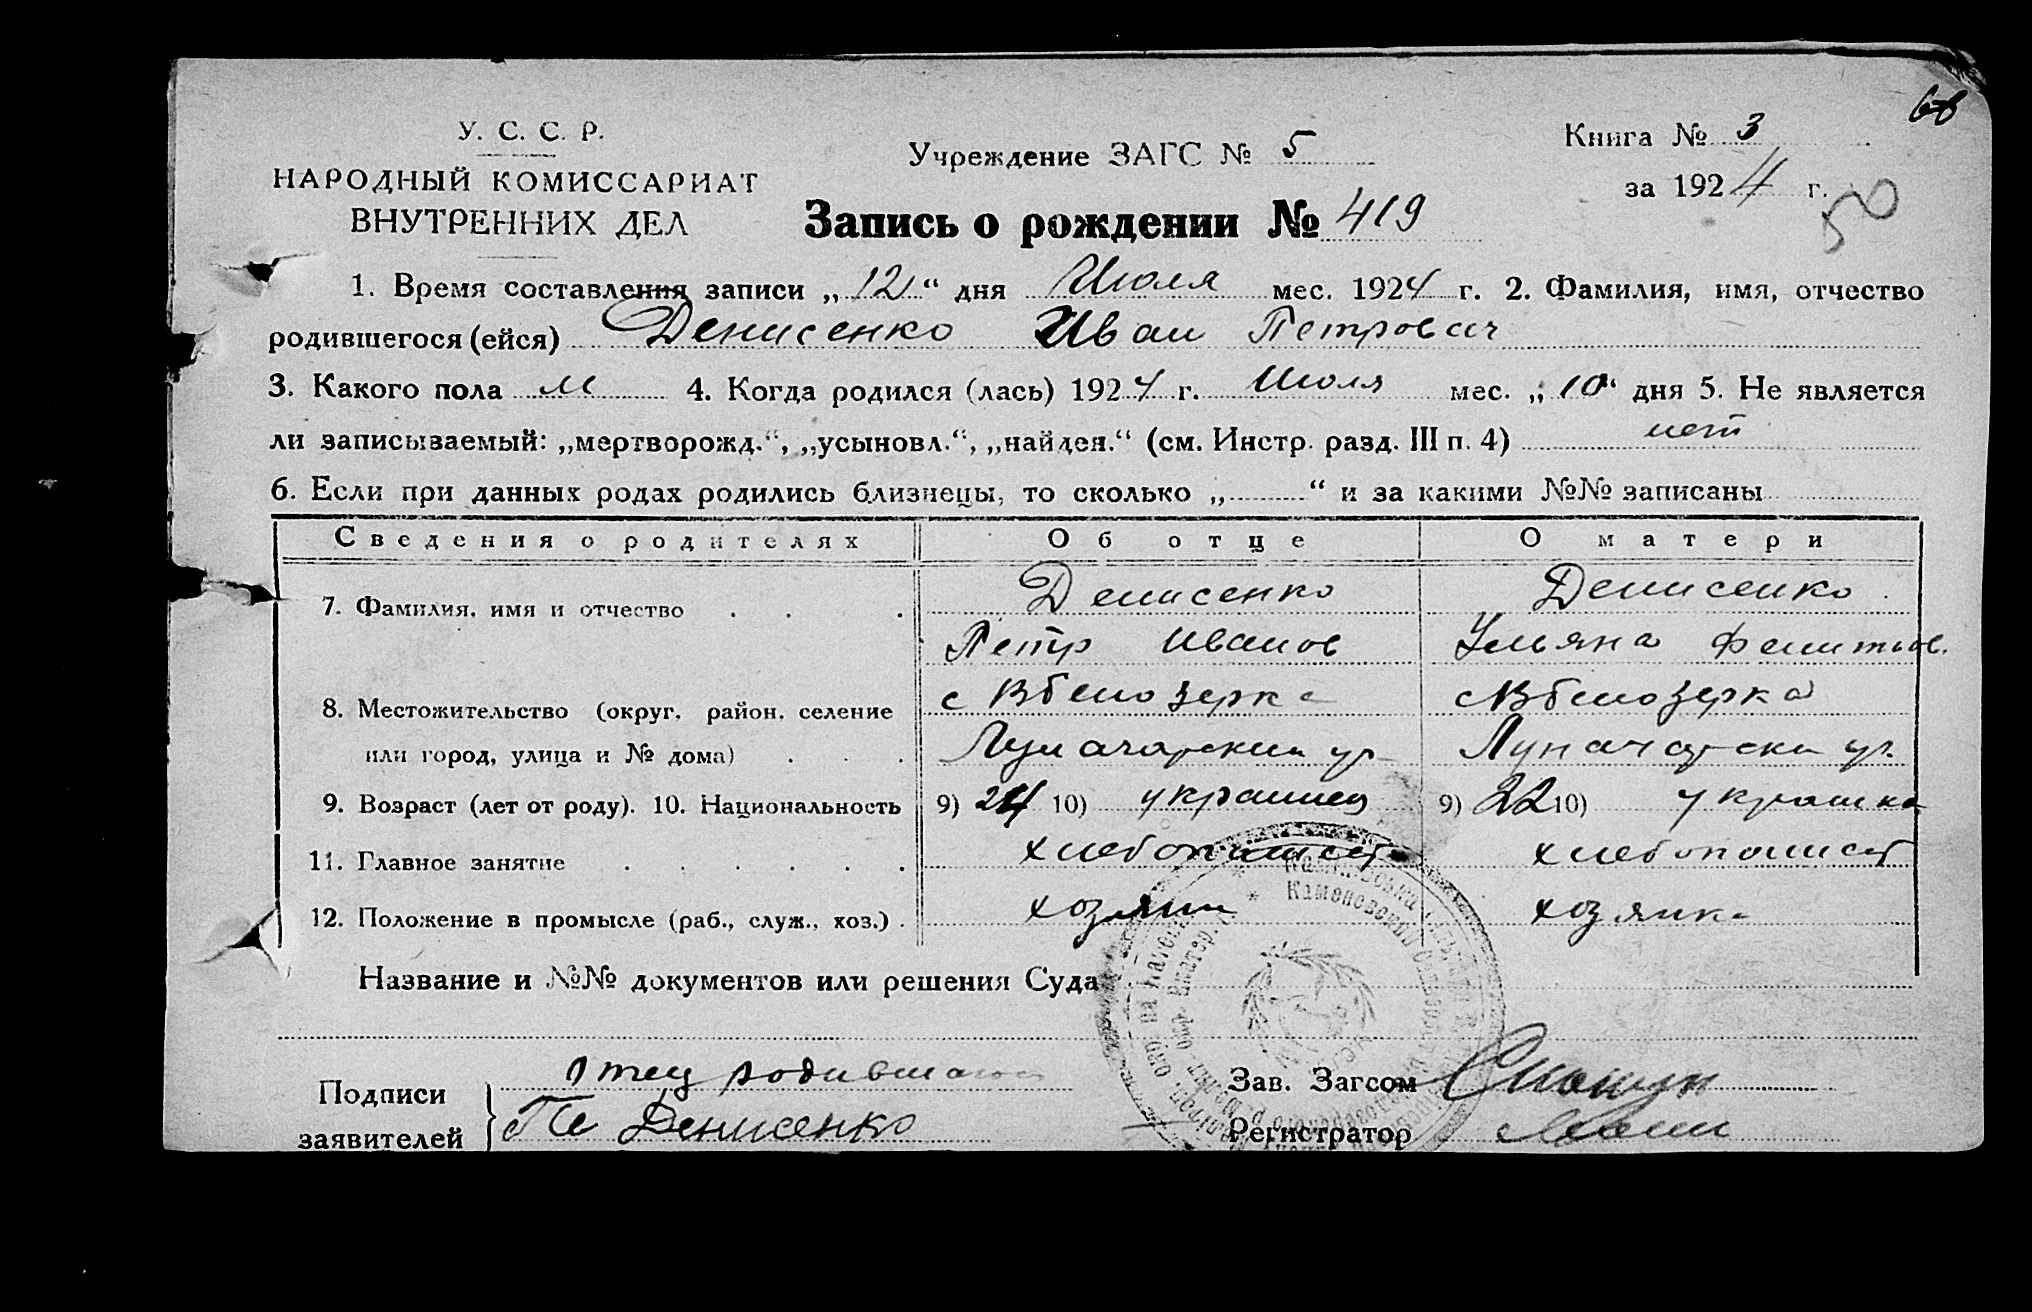 У. С. С. Р.
НАРОДНЫЙ КОМИССАРИАТ
ВНУТРЕННИХ ДЕЛ
Учреждение ЗАГС № 5
Книга № 3
за 1924 г.
50
Запись о рождении № 419
1. Время составления записи „12“ дня Июля мес. 1924 г. 2. Фамилия, имя, отчество
родившегося (ейся) Денисенко Иван Петрович
3. Какого пола м 4. Когда родился (лась) 1924 г. Июля мес. „10“ дня 5. Не является
ли записываемый: „мертворожд.“, „усыновл.“, „найден.“ (см. Инстр. разд. III п. 4) нет
6. Если при данных родах родились близнецы, то сколько „ “ и за какими №№ записаны
Сведения о родителях Об отце О матери
7. Фамилия, имя и отчество . . . Денисенко Денисенко
Петр Иванов Ульяна
8. Местожительство (округ, район, селение с Вбелозерка с Вбелозерка
или город, улица и № дома) . . . Луначарский ул Луначарски ул.
9. Возраст (лет от роду). 10. Национальность 9) 24 10) украинец 9) 22 10) украинка
11. Главное занятие . . . . . . хлебопашест хлебопашест
12. Положение в промысле (раб., служ., хоз.) . хозяин хозяйка
Название и №№ документов или решения Суда
Подписи
заявителей
отец родившагося
Пе Денисенко
Зав. Загсом
Регистратор